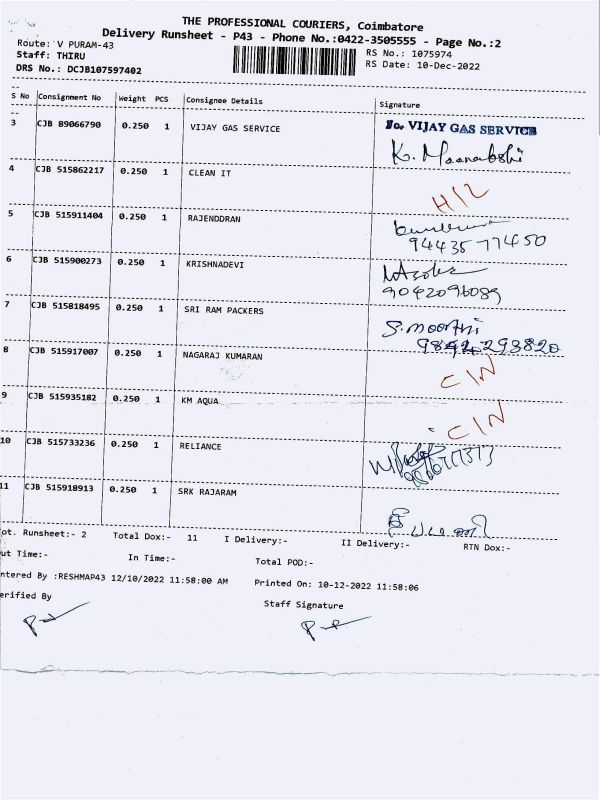 THE PROFESSIONAL COURIERS, Coimbatore
Delivery Runsheet - P43 - Phone No.:0422-3505555 - Page No.:2
Route: V PURAM-43
RS No.: 1075974
Staff: THIRU
RS Date: 10-Dec-2022
DRS No.: DCJB107597402
S No Consignment No Weight PCS Consignee Details Signature
3 CJB 89066790 0.250 1 VIJAY GAS SERVICE For VIJAY GAS SERVICE
4 CJB 515862217 0.250 1 CLEAN IT
5 CJB 515911404 0.250 1 RAJENDDRAN
94435 77450
6 CJB 515900273 0.250 1 KRISHNADEVI
9042096089
7 CJB 515818495 0.250 1 SRI RAM PACKERS S. moorthi
8 CJB 515917007 0.250 1 NAGARAJ KUMARAN C/N
9 CJB 515935182 0.250 1 KM AQUA C/N
10 CJB 515733236 0.250 1 RELIANCE
11 CJB 515918913 0.250 1 SRK RAJARAM
ot. Runsheet:- 2 Total Dox:- 11 I Delivery:- II Delivery:- RTN Dox:-
ut Time:- In Time:- Total POD:-
ntered By :RESHMAP43 12/10/2022 11:58:00 AM Printed On: 10-12-2022 11:58:06
erified By Staff Signature